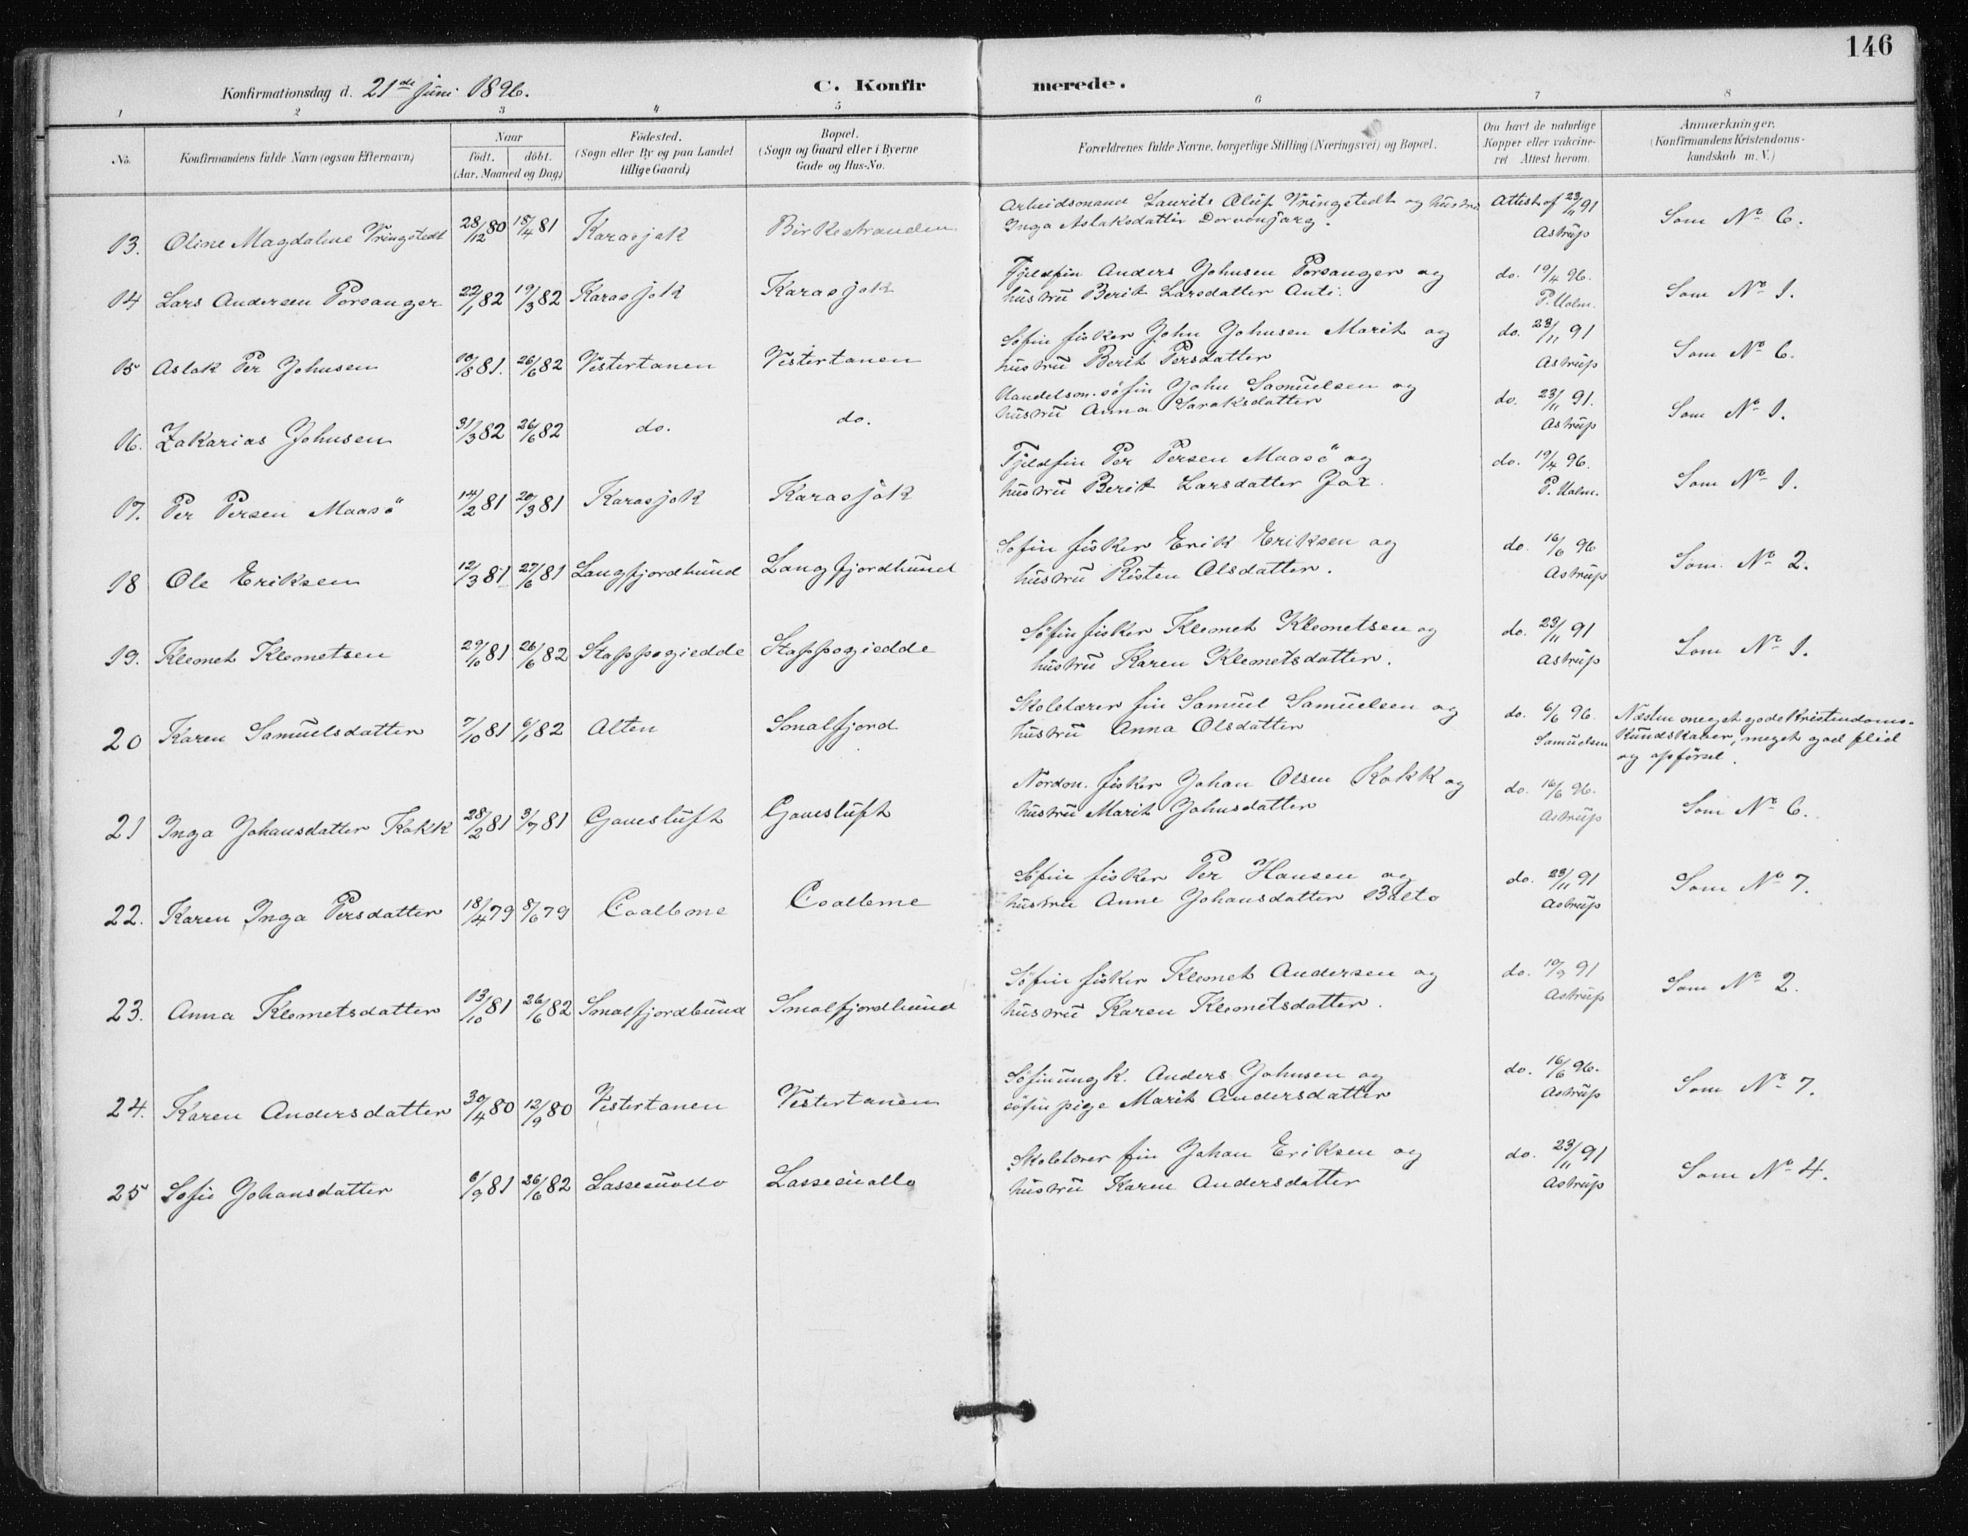 146
Konfirmationsdag d. 21de Juni 1896. C. Konfirmerede.
1 2 3 4 5 6 7 8
No. Konfirmandens fulde Navn (ogsaa Efternavn) Naar födt. döbt. (Aar, Maaned og Dag.) Födested. (Sogn eller By og paa Landet tillige Gaard.) Bopæl. (Sogn og Gaard eller i Byerne Gade og Hus-No. Forældrenes fulde Navne, borgerlige Stilling (Næringsvei) og Bopæl. Om havt de naturlige Kopper eller vakcineret Attest herom. Anmærkninger. (Konfirmandens Kristendomskundskab m. V.)
13. Oline Magdalene Vringstedt 28/12 80 18/4 81 Karasjok Birkestranden Arbeidsmand Laurits Oluf Vringstedt og hustru Attest af 23/11 91 Som No 6.
Inga Aslaksdatter Dorvonjarg. Astrup
14 Lars Andersen Porsanger 22/1 82 19/3 82 Karasjok Karasjok Fjeldfin Anders Johnsen Porsanger og do. 19/4 96. Som No 1.
hustru Berit Larsdatter Anti. P. Holm.
15 Aslak Per Johnsen 10/8 81. 26/6 82 Vestertanen Vestertanen Söfin fisker John Johnsen Marit og do. 23/11 91 Som No 6.
hustru Berit Persdatter Astrup
16. Zakarias Johnsen 31/3 82 26/6 82 do. do. Handelsm. söfin John Samuelsen og do. 23/11 91. Som No 1.
hustru Anna Saraksdatter Astrup
17. Per Persen Maasö 14/2 81 20/3 81 Karasjok Karasjok Fjeldfin Per Persen Maasö og do. 19/4 96. Som No 1.
hustru Berit Larsdatter Jax. P. Holm.
18 Ole Eriksen 12/3 81 27/6 81 Langfjordbund Langfjordbund Söfin fisker Erik Eriksen og do. 16/6 96 Som No 2.
hustru Risten Olsdatter. Astrup
19. Klemet Klemetsen 29/10 81 26/6 82 Stappogiedde Stappogiedde Söfin fisker Klemet Klemetsen og do. 23/11 91 Som No 1.
hustru Karen Klemetsdatter. Astrup
20 Karen Samuelsdatter 7/10 81 6/1 82 Alten Smalfjord Skolelærer fin Samuel Samuelsen og do. 6/6 96. Næsten meget gode Kristendoms-
hustru Anna Olsdatter Samuelsen kundskaber, meget god flid
og opförsel.
21 Inga Johansdatter Kokk 28/2 81 3/7 81 Gavesluft Gavesluft Nordm. fisker Johan Olsen Kokk og do. 16/6 96. Som No 6.
hustru Marit Johnsdatter Astrup
22. Karen Inga Persdatter 18/4 79 8/6 79 Coalbme Coalbme Söfin fisker Per Hansen og do. 23/11 91 Som No 7.
hustru Anne Johansdatter Balto Astrup
23. Anna Klemetsdatter 13/10 81 26/6 82 Smalfjordbund Smalfjordbund Söfin fisker Klemet Andersen og do. 19/9 91 Som No 2.
hustru Karen Klemetsdatter. Astrup
24. Karen Andersdatter 30/4 80 12/9 80 Vestertanen Vestertanen Söfin ungk. Anders Johnsen og do. 16/6 96. Som No 7.
söfin pige Marit Andersdatter Astrup
25 Sofie Johansdatter 6/9 81 26/6 82 Lassesuollo Lassesuollo Skolelærer fin Johan Eriksen og do. 23/11 91 Som No 4.
hustru Karen Andersdatter Astrup